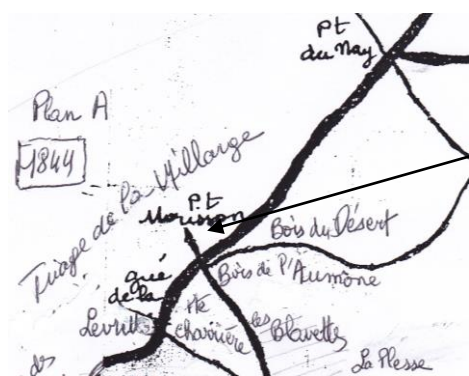 Pt
du Nay
Plan A
1844
Triage de la Millarge
Pt
Mousson
Bois du Désert
Bois de l'Aumône
gué
de la
Levrette
Hte
Charrière
les Blavettes
des
La Plesse